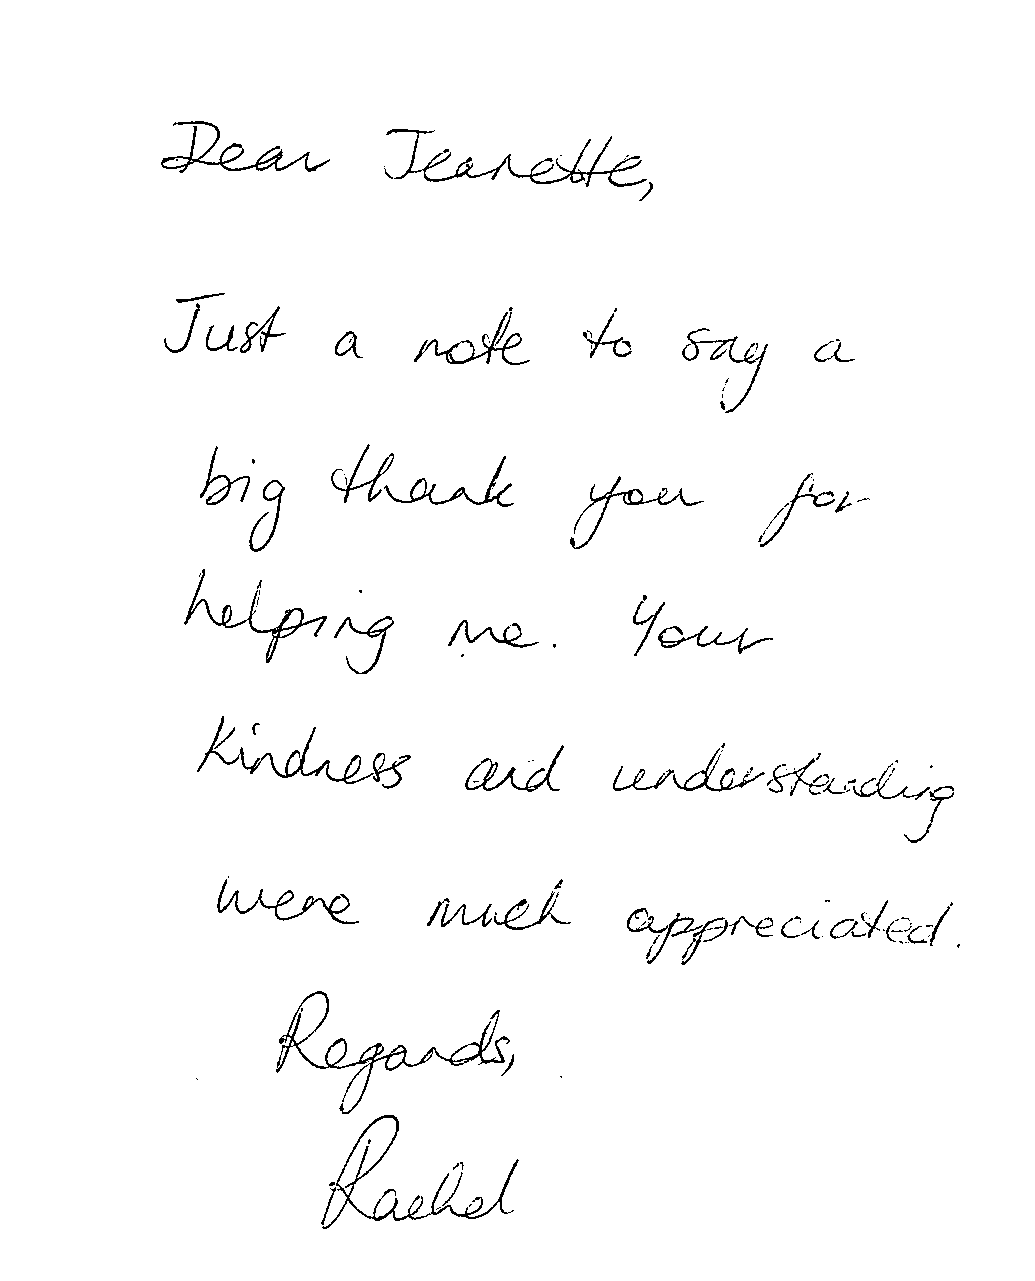 Dear Jeanette,
Just a note to say a
big thank you for
helping me. Your
kindness and understanding
were much appreciated.
Regards,
Rachel